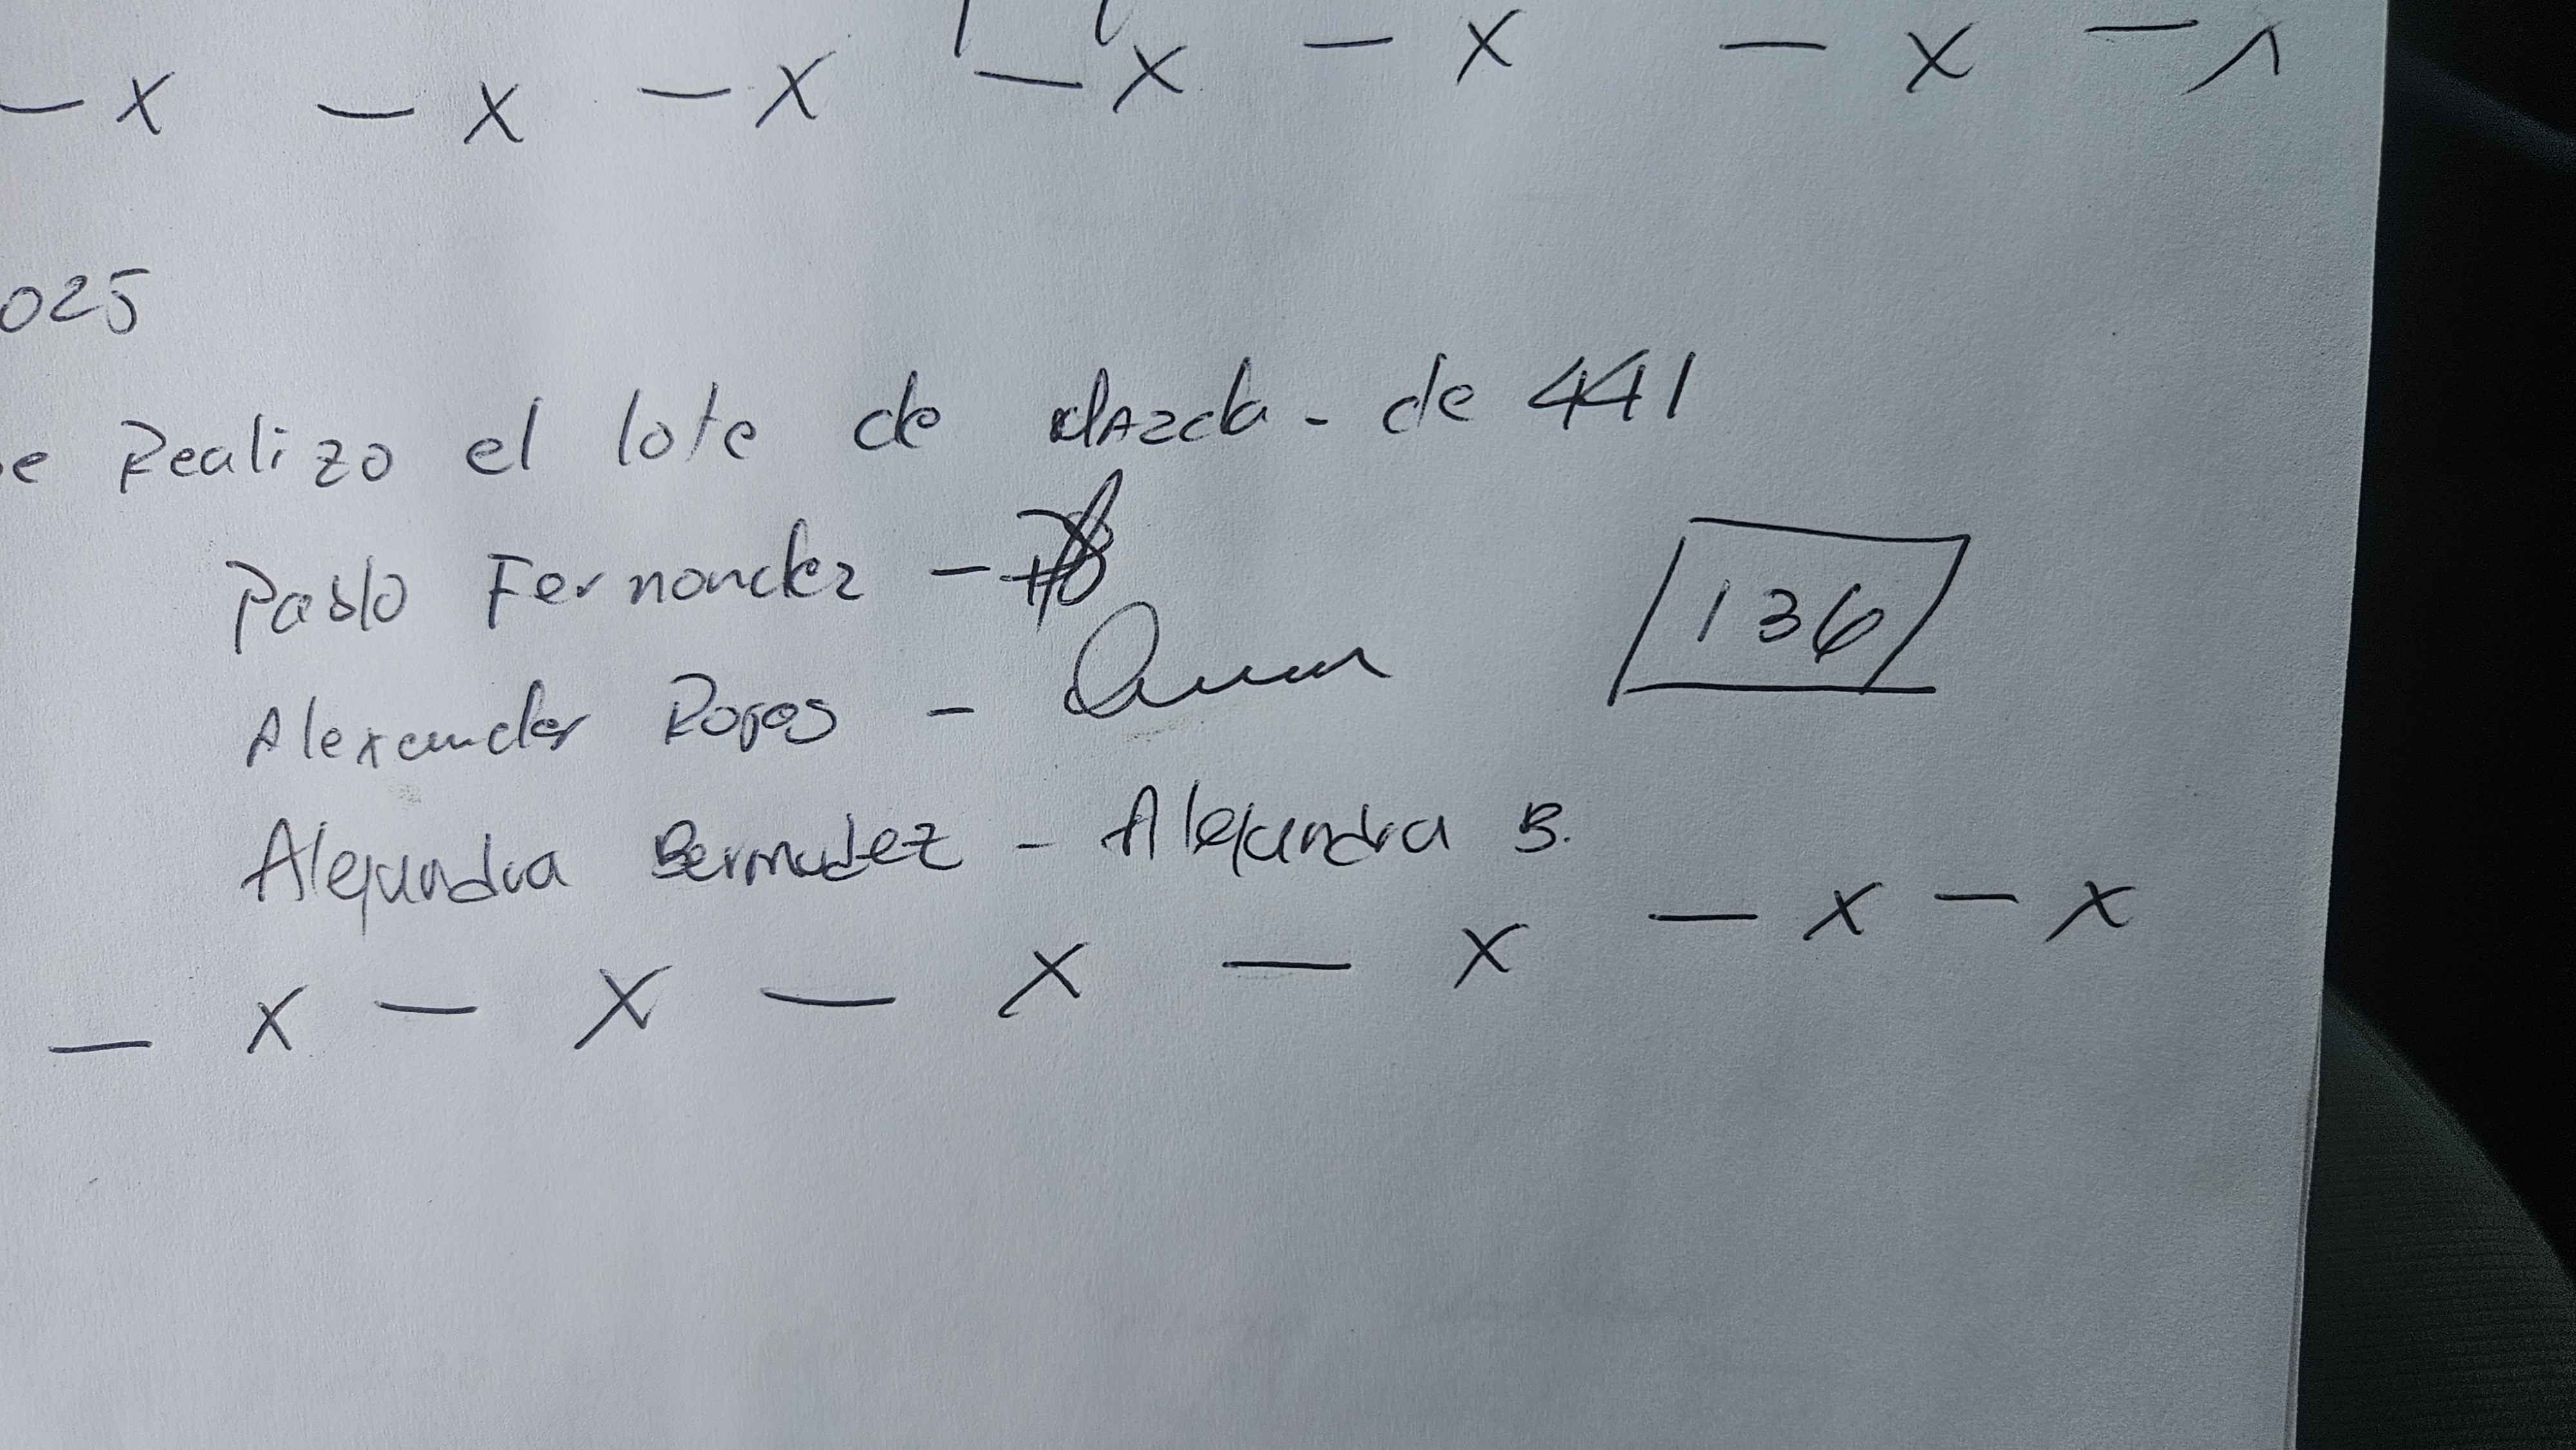 - x - x - x - x - x - x -
025
e Realizo el lote de Mazda - de 441
Pablo Fernandez -
136
Alexander Rojas -
Alejandra Bermudez - Alejandra B.
- x - x - x - x - x - x